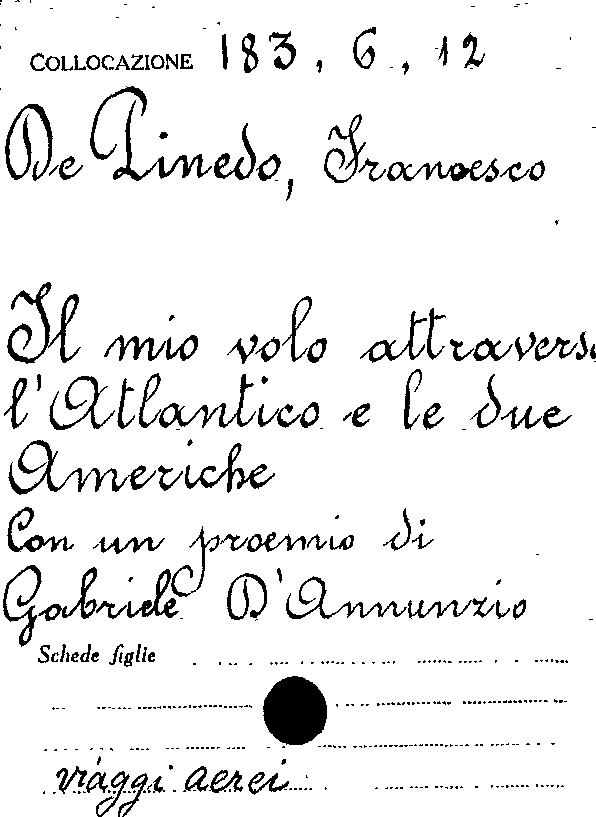 COLLOCAZIONE 183, 6, 12
De Pinedo, Francesco
Il mio volo attraverso
l'Atlantico e le due
Americhe
Con un proemio di
Gabriele D'Annunzio
Schede figlie
viaggi aerei